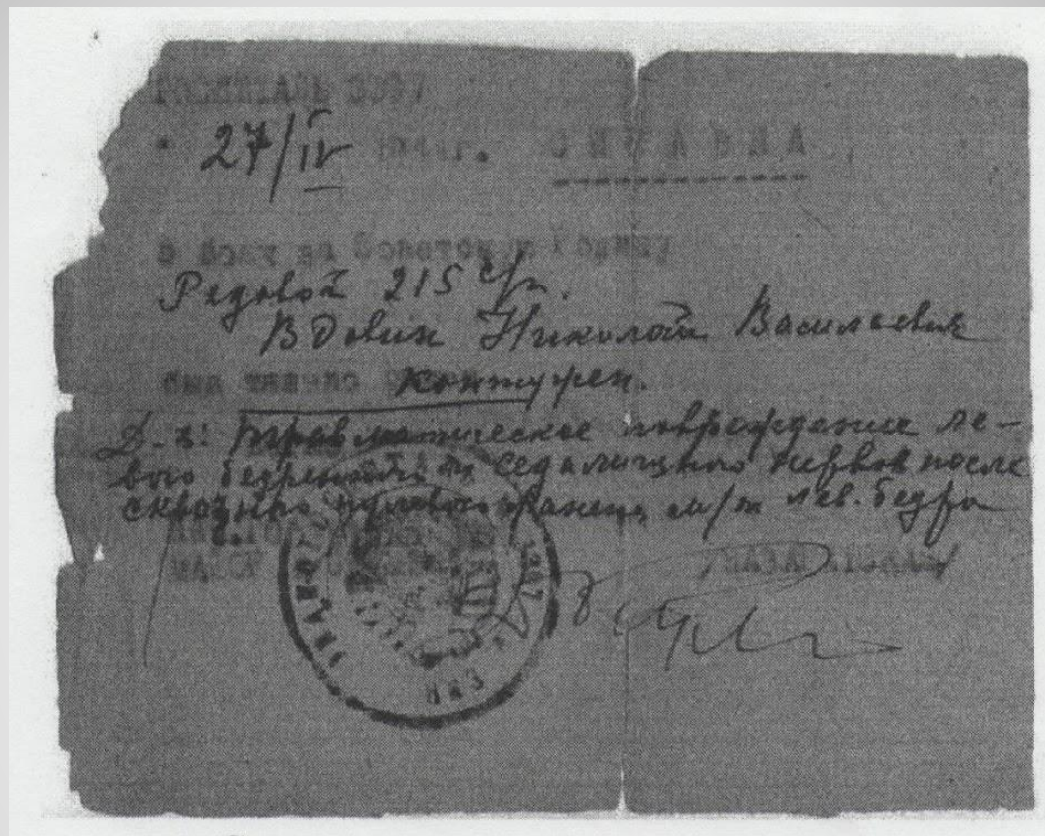 ГОСПИТАЛЬ
27/IV 194 г. СПРАВКА
в боях за Советскую Родину
Рядовой 215 с/п.
Вдовин Николай Васильевич
был тяжело контужен.
Д-з: Травматическое повреждение ле-
вого бедренного и седалищного нервов после
сквозного пулевого ранения м/т лев. бедра